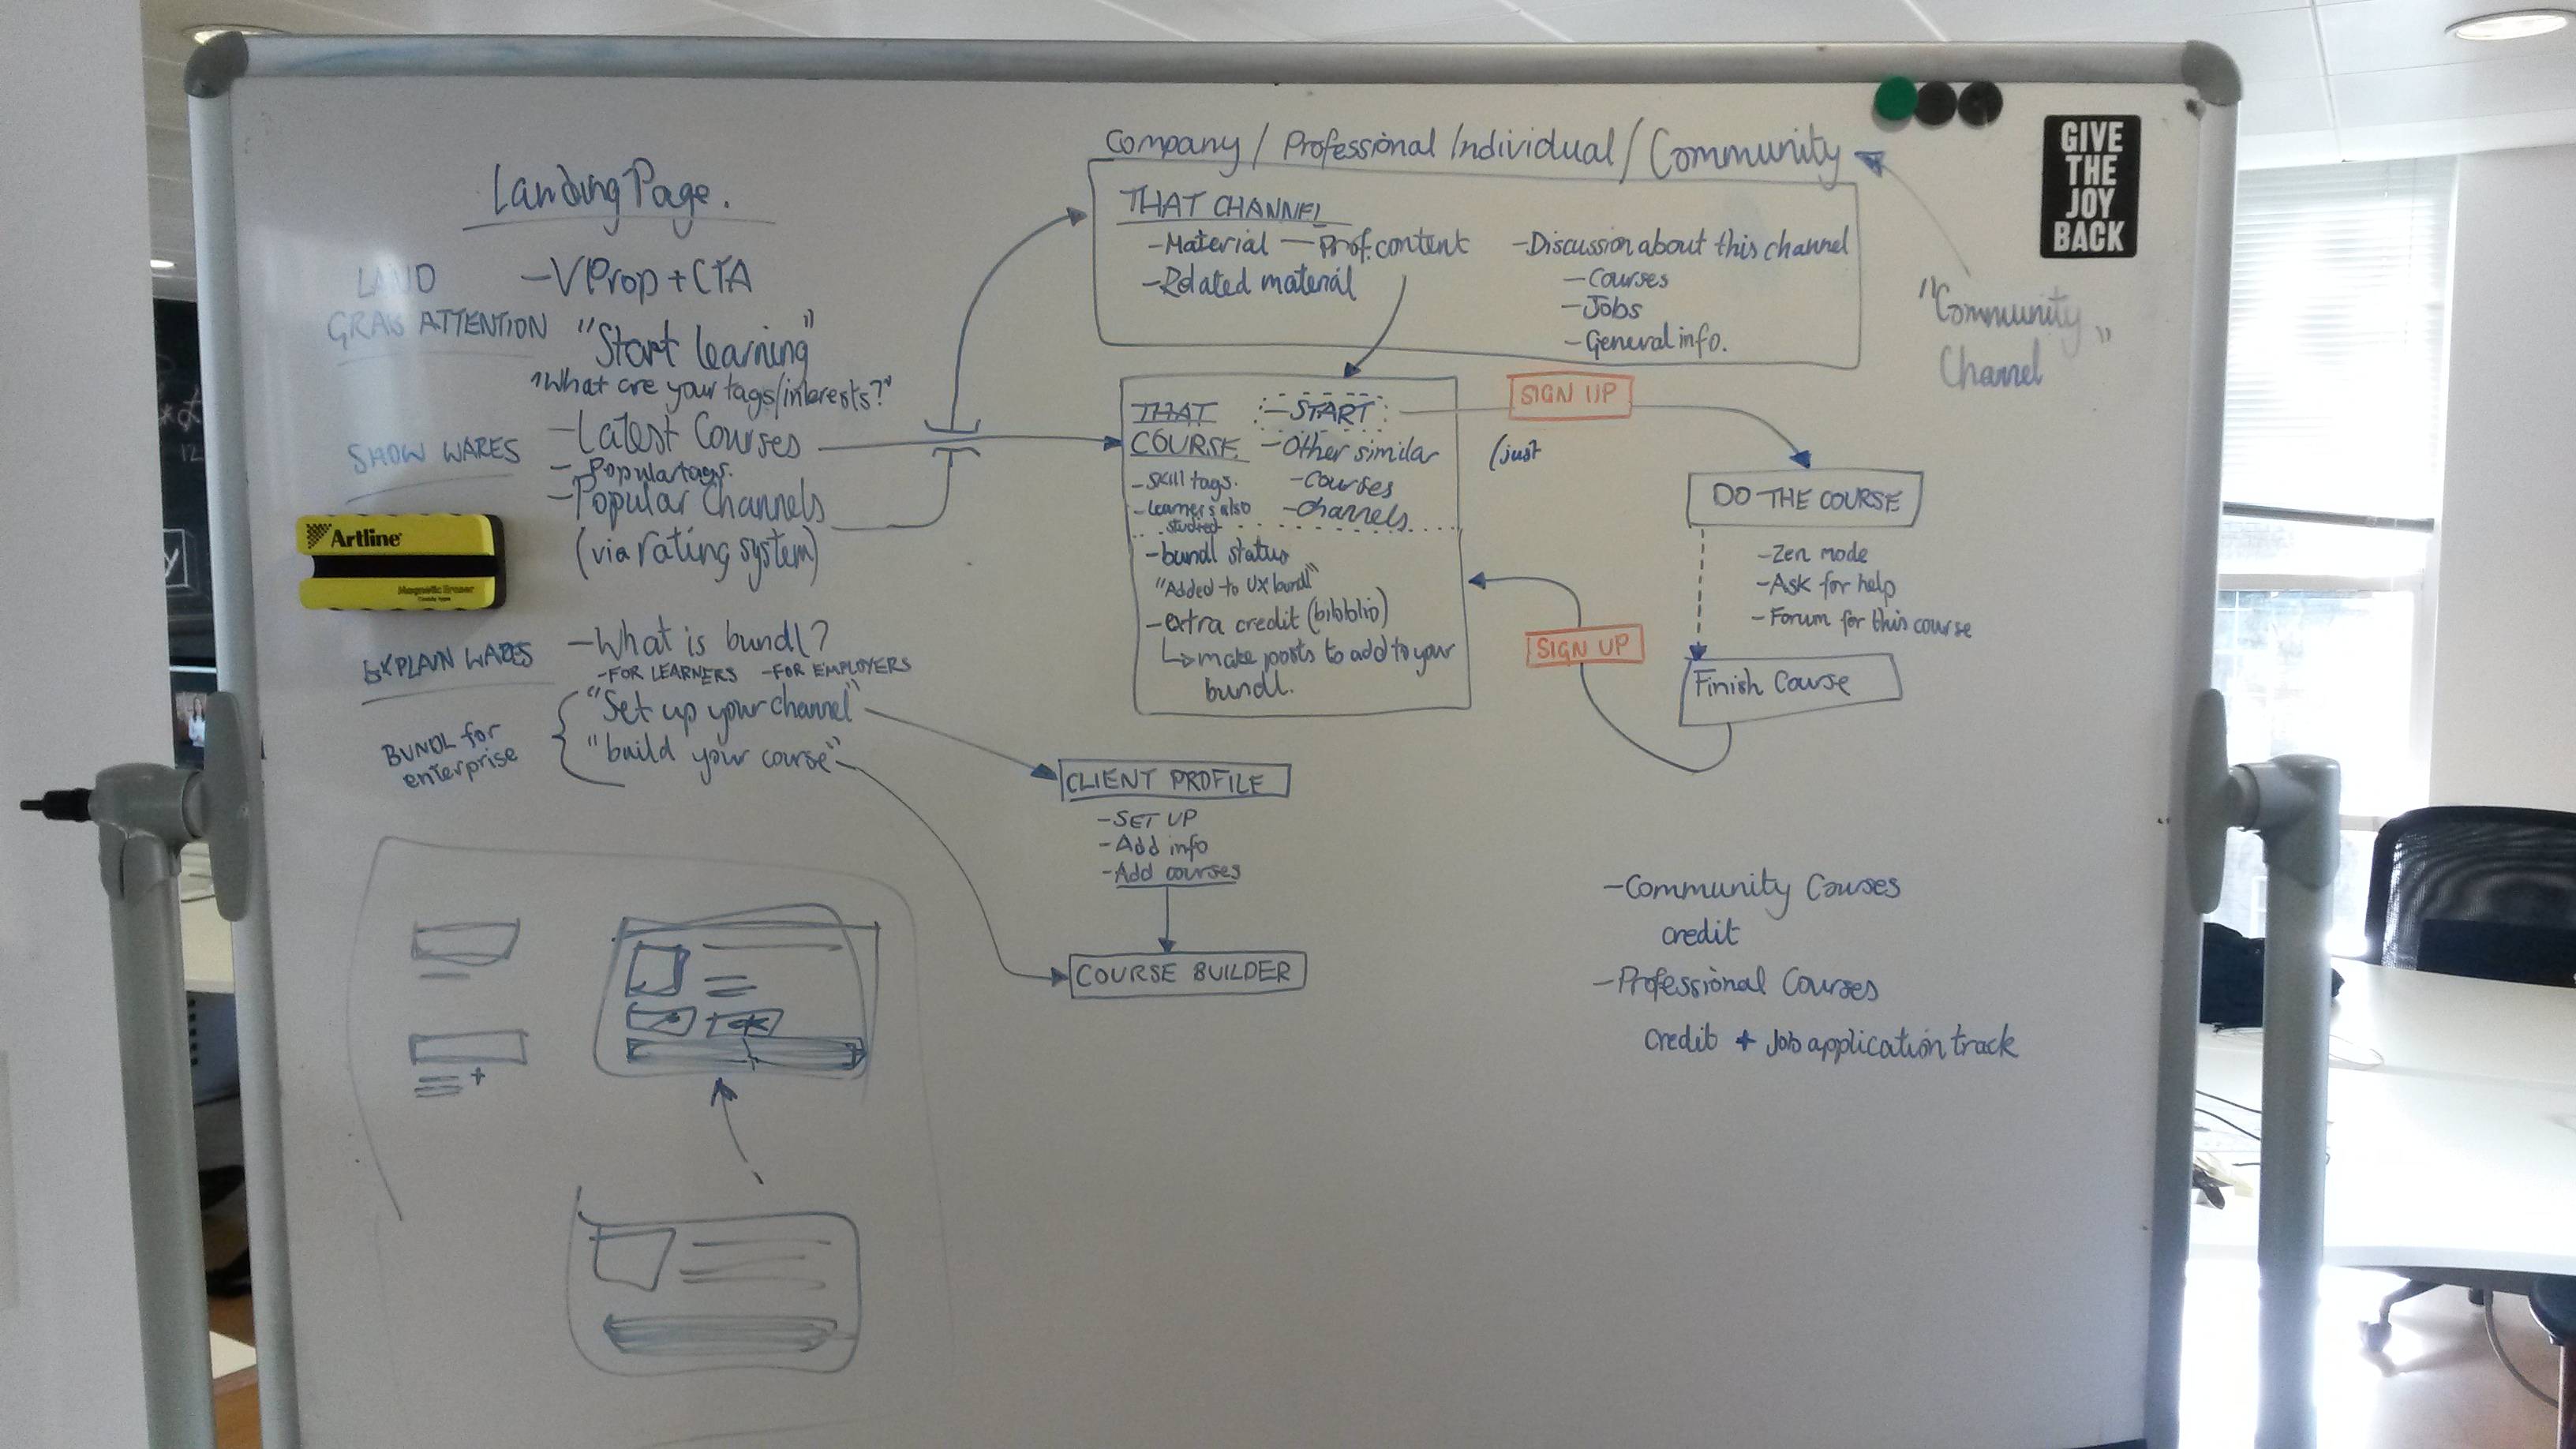 Landing Page.
LAND
GRAB ATTENTION
- V Prop + CTA
"Start learning"
"What are your tags/interests?"
SHOW WARES
- Latest Courses
- Popular tags.
- Popular Channels
(via rating system)
Artline
Magnetic Eraser
EXPLAIN WARES
- What is bundl?
- FOR LEARNERS - FOR EMPLOYERS
BUNDL for
enterprise
"Set up your channel"
"build your course"
Company / Professional Individual / Community
THAT CHANNEL
- Material — Prof. content
- Related material
- Discussion about this channel
- Courses
- Jobs
- General info.
"Community
Channel"
GIVE
THE
JOY
BACK
THAT
COURSE
- skill tags.
- learners also
studied
- START
- Other similar
- courses
- channels
- bundl status
"Added to UX bundl"
- extra credit (bibblio)
↳ make posts to add to your
bundl.
SIGN UP
(just
DO THE COURSE
- Zen mode
- Ask for help
- Forum for this course
SIGN UP
Finish Course
CLIENT PROFILE
- SET UP
- Add info
- Add courses
COURSE BUILDER
- Community Courses
credit
- Professional Courses
credit + Job application track